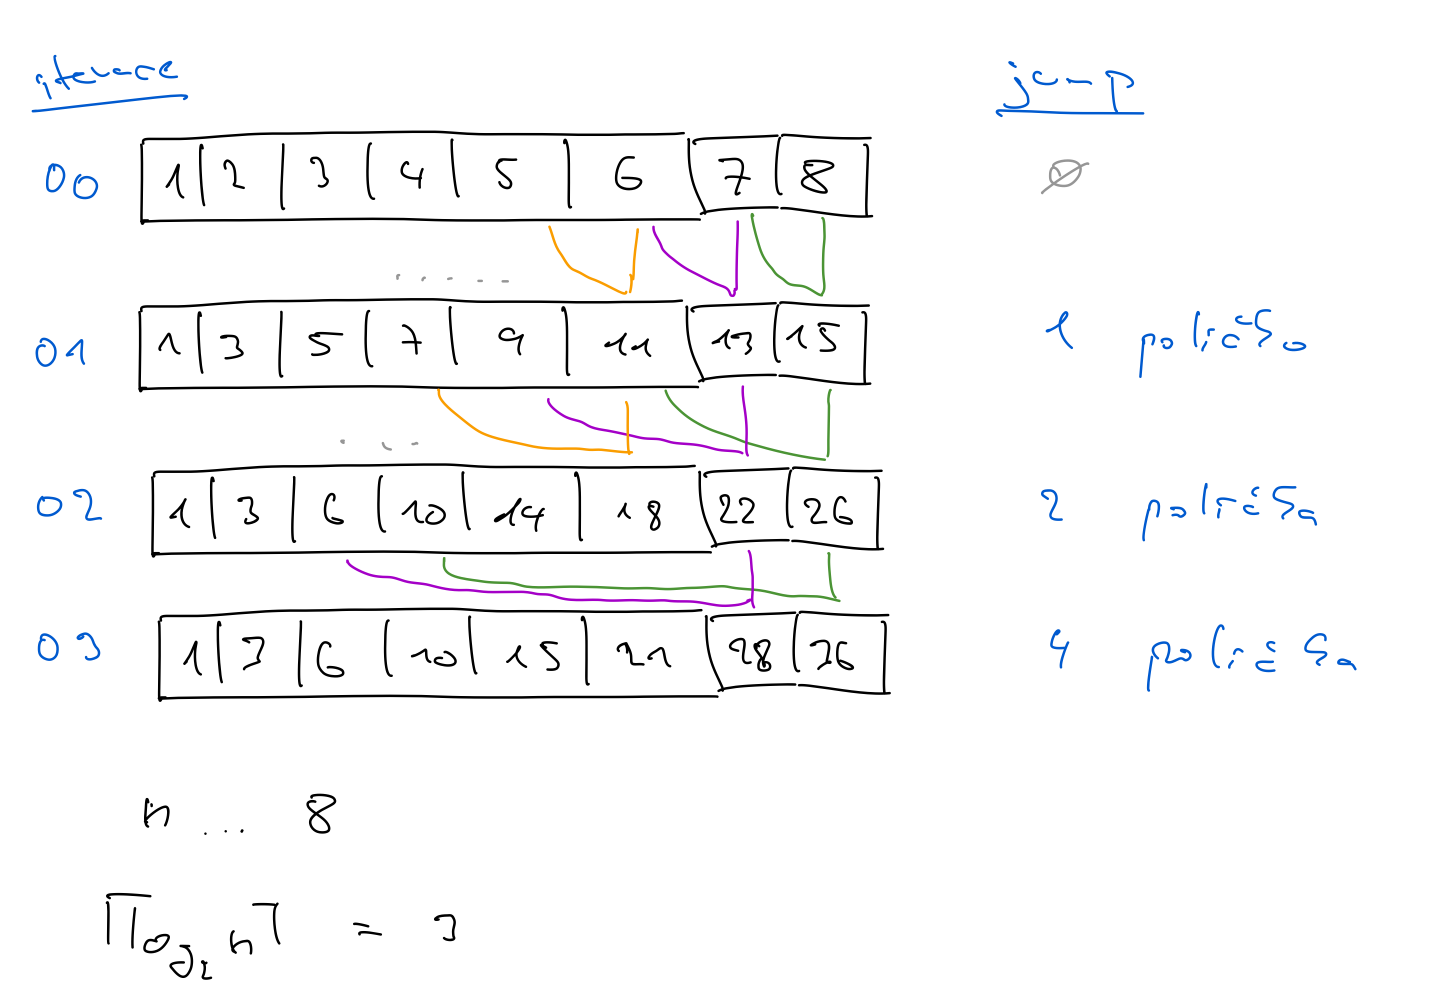 iterace jump
00 1 2 3 4 5 6 7 8 ∅
01 1 3 5 7 9 11 13 15 1 políčko
02 1 3 6 10 14 18 22 26 2 políčka
03 1 3 6 10 15 21 28 36 4 políčka
n ... 8
⌈log₂ n⌉ = 3